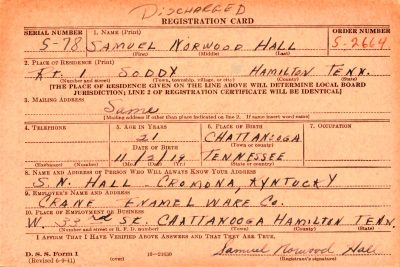 DISCHARGED
REGISTRATION CARD
SERIAL NUMBER 1. NAME (Print) ORDER NUMBER
S-78 SAMUEL NORWOOD HALL S-2664
(First) (Middle) (Last)
2. PLACE OF RESIDENCE (Print)
RT. 1 SODDY HAMILTON TENN.
(Number and street) (Town, township, village, or city) (County) (State)
[THE PLACE OF RESIDENCE GIVEN ON THE LINE ABOVE WILL DETERMINE LOCAL BOARD
JURISDICTION; LINE 2 OF REGISTRATION CERTIFICATE WILL BE IDENTICAL]
3. MAILING ADDRESS
Same
[Mailing address if other than place indicated on line 2. If same insert word same]
4. TELEPHONE 5. AGE IN YEARS 6. PLACE OF BIRTH 7. OCCUPATION
21 CHATTANOOGA
DATE OF BIRTH (Town or county)
11 / 2 / 19 TENNESSEE
(Exchange) (Number) (Mo.) (Day) (Yr.) (State or country)
8. NAME AND ADDRESS OF PERSON WHO WILL ALWAYS KNOW YOUR ADDRESS
S. N. HALL CROMONA, KYNTUCKY
9. EMPLOYER'S NAME AND ADDRESS
CRANE ENAMEL WARE CO.
10. PLACE OF EMPLOYMENT OR BUSINESS
W. ST. CHATTANOOGA HAMILTON TENN.
(Number and street or R. F. D. number) (Town) (County) (State)
I AFFIRM THAT I HAVE VERIFIED ABOVE ANSWERS AND THAT THEY ARE TRUE.
Samuel Norwood Hall
D. S. S. Form 1 (over) (Registrant's signature)
(Revised 6-9-41)